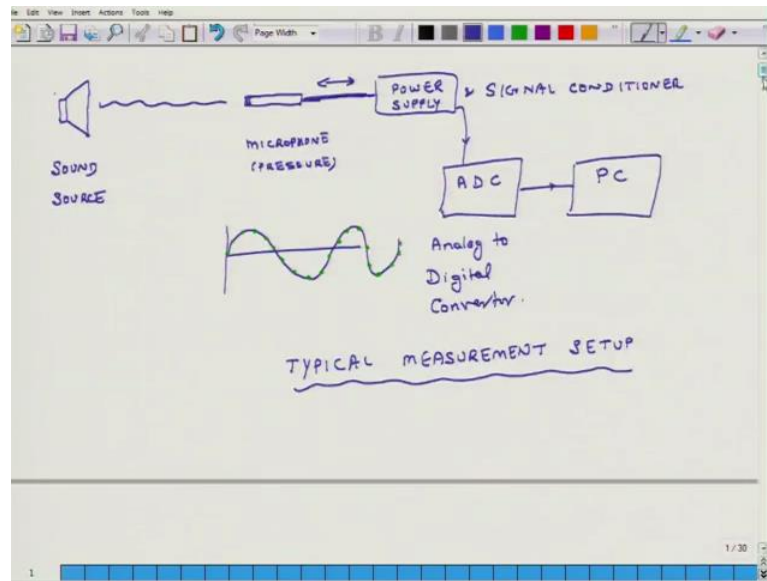 Edit View Insert Actions Tools Help
Page Width
B I
POWER
SUPPLY
& SIGNAL CONDITIONER
MICROPHONE
(PRESSURE)
SOUND
SOURCE
ADC
PC
Analog to
Digital
Convertor.
TYPICAL MEASUREMENT SETUP
1/30
1